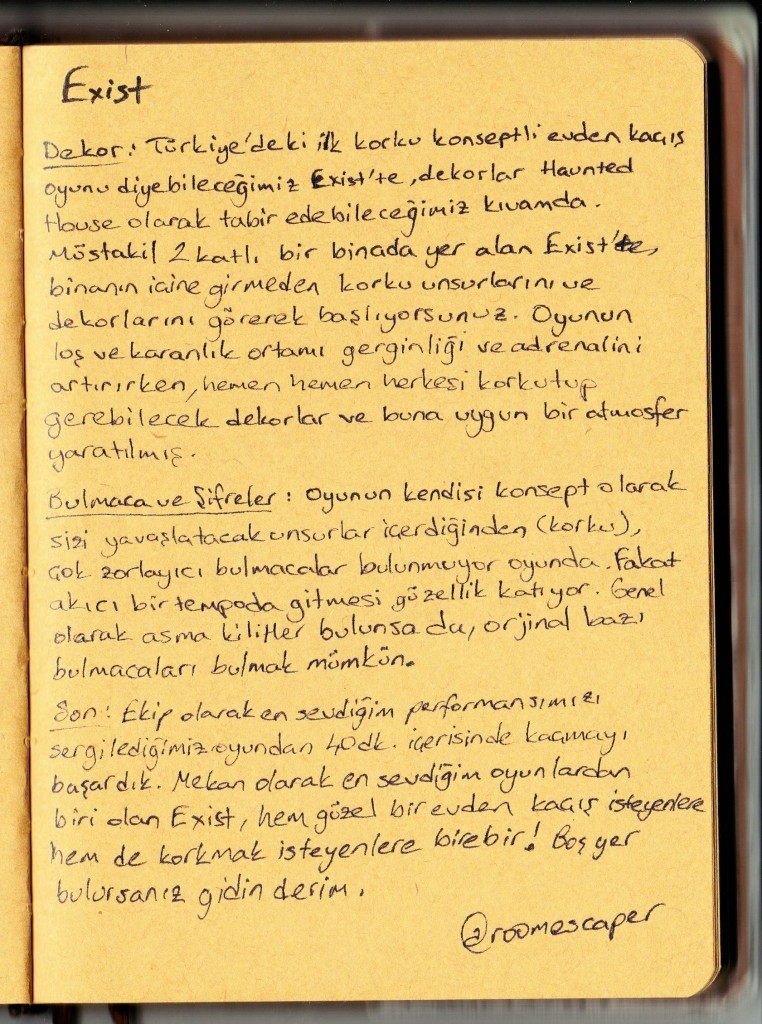 Exist
Dekor: Türkiye'deki ilk korku konseptli evden kaçış
oyunu diyebileceğimiz Exist'te, dekorlar Haunted
House olarak tabir edebileceğimiz kıvamda.
Müstakil 2 katlı bir binada yer alan Exist'te,
binanın içine girmeden korku unsurlarını ve
dekorlarını görerek başlıyorsunuz. Oyunun
loş ve karanlık ortamı gerginliği ve adrenalini
artırırken, hemen hemen herkesi korkutup
gerebilecek dekorlar ve buna uygun bir atmosfer
yaratılmış.
Bulmaca ve Şifreler: Oyunun kendisi konsept olarak
sizi yavaşlatacak unsurlar içerdiğinden (korku),
çok zorlayıcı bulmacalar bulunmuyor oyunda. Fakat
akıcı bir tempoda gitmesi güzellik katıyor. Genel
olarak asma kilitler bulunsa da, orjinal bazı
bulmacaları bulmak mümkün.
Son: Ekip olarak en sevdiğim performansımızı
sergilediğimiz oyundan 40dk. içerisinde kaçmayı
başardık. Mekan olarak en sevdiğim oyunlardan
biri olan Exist, hem güzel bir evden kaçış isteyenlere
hem de korkmak isteyenlere birebir! Boş yer
bulursanız gidin derim.
@roomescaper